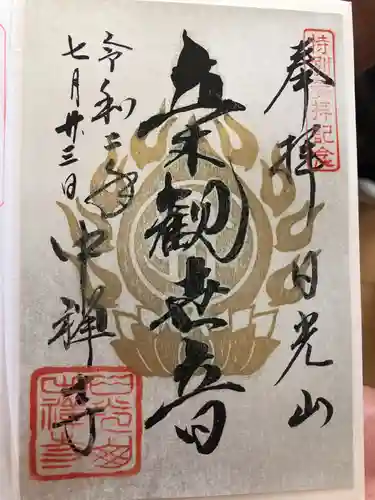 特別参拝記念
奉拝 日光山
立木観世音
令和二年
七月廿三日
中禅寺